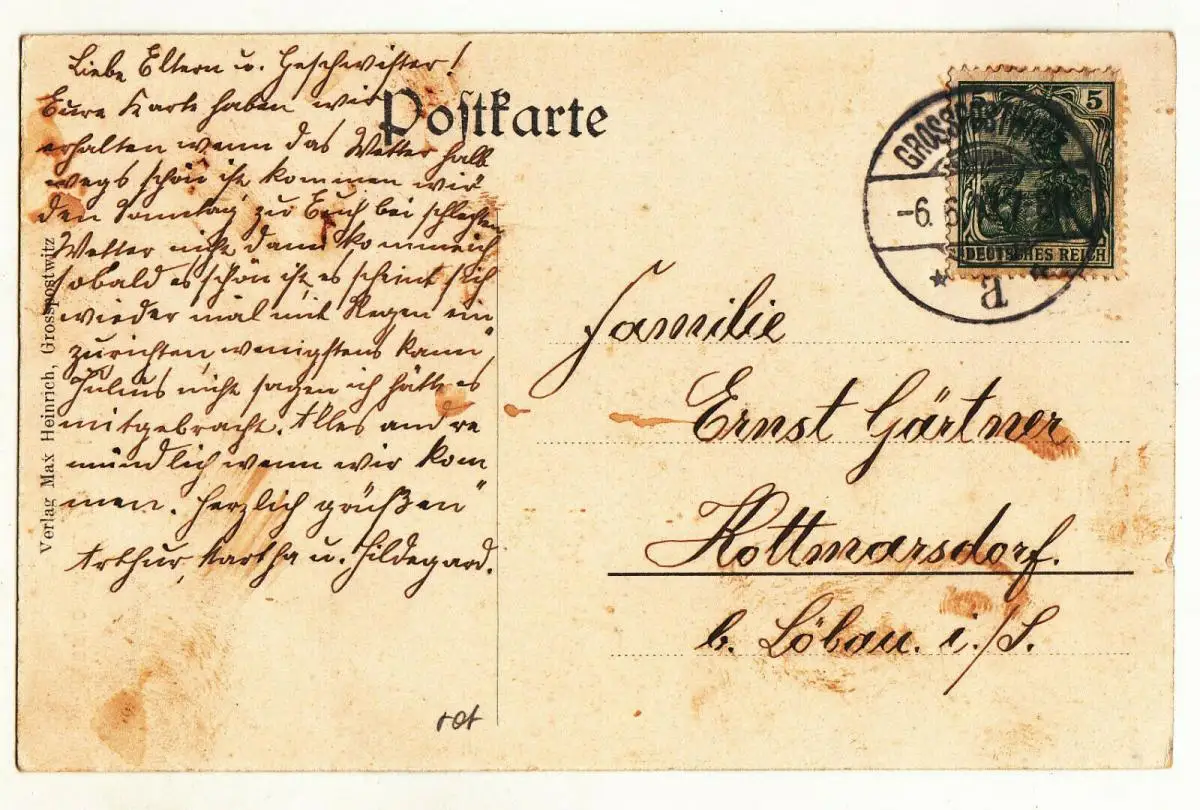 Liebe Eltern u. Geschwister!
Eure Karte haben wir
erhalten wenn das Wetter halb
wegs schön ist kommen wir
den Sonntag zu Euch bei schlechten
Wetter nicht dann kommen
sobald es schön ist es scheint sich
wieder mal mit Regen ein
zurichten wenigstens kann
Julius nicht sagen ich hätt es
mitgebracht. Alles andre
mündlich wenn wir kom
men. Herzlich grüßen
Arthur, Martha u. Hildegard.
Postkarte
Verlag Max Heinrich, Grosspostwitz
5 5
DEUTSCHES REICH
GROSSPOSTWITZ
-6. 6.
a
Familie
Ernst Gärtner
Kottmarsdorf.
b. Löbau. i./S.